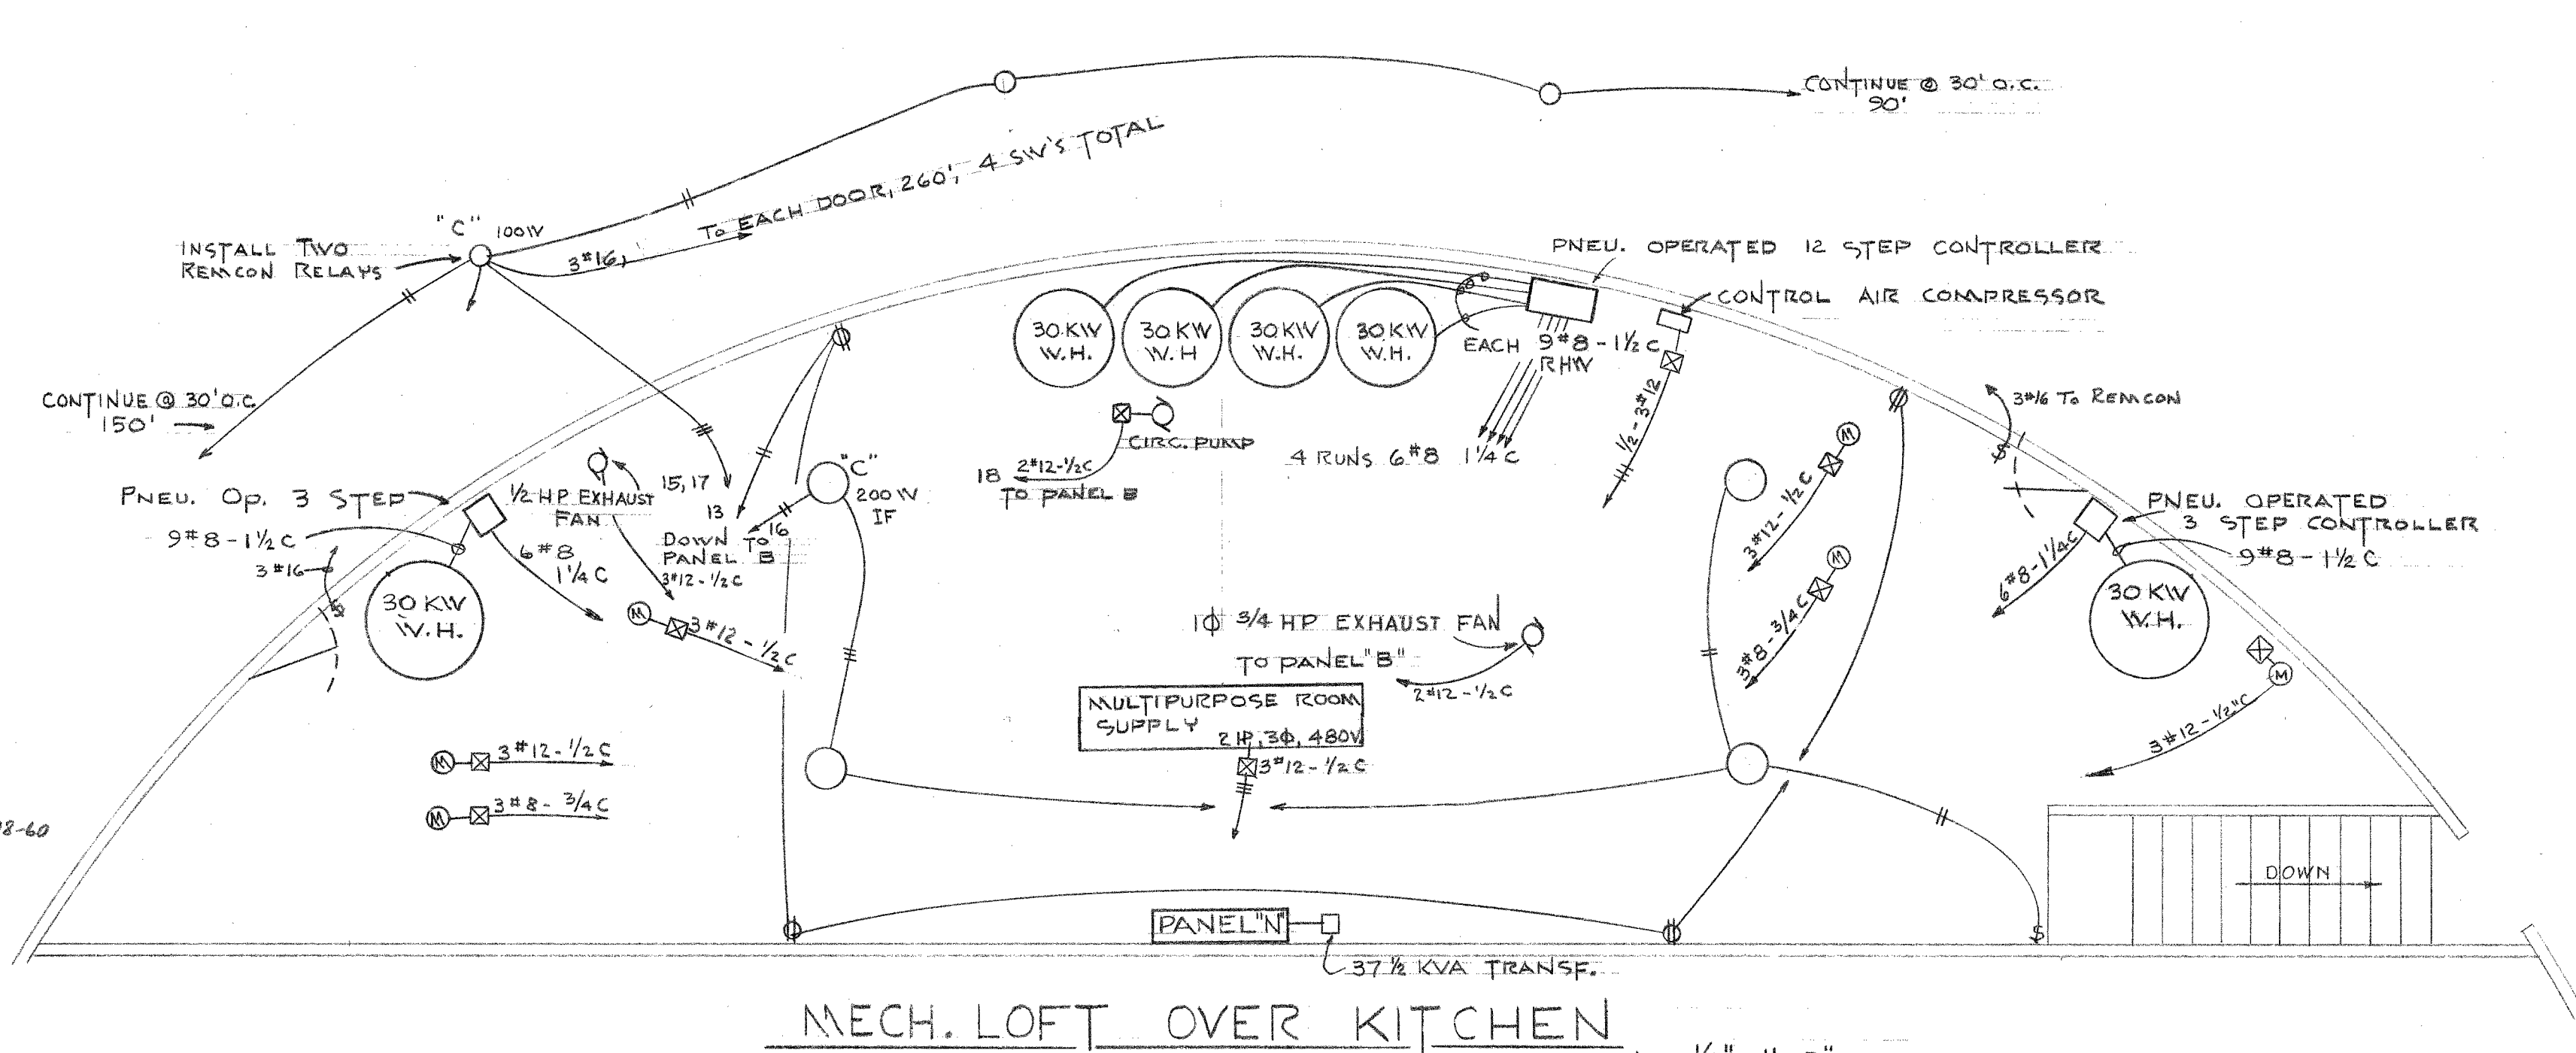 CONTINUE @ 30' O.C.
90'
TO EACH DOOR, 260', 4 SW'S TOTAL
"C" 100W
INSTALL TWO
REMCON RELAYS
3#16,
PNEU. OPERATED 12 STEP CONTROLLER
CONTROL AIR COMPRESSOR
30 KW
W.H.
30 KW
W.H
30 KW
W.H.
30 KW
W.H.
EACH 9#8-1½C
RHW
½-3#12
CONTINUE @ 30' O.C.
150'
3#16 TO REMCON
CIRC. PUMP
18 2#12-½C
TO PANEL B
4 RUNS 6#8 1¼C
"C"
200W
IF
PNEU. OP. 3 STEP
9#8-1½C
3#16
½ HP EXHAUST
FAN
15, 17
13
16
DOWN TO
PANEL B
3#12-½C
6#8
1¼C
30 KW
W.H.
M
3#12-½C
M
3#12-½C
M
3#8-¾C
PNEU. OPERATED
3 STEP CONTROLLER
9#8-1½C
6#8-1¼C
30 KW
W.H.
M
3#12-½"C
1Φ ¾ HP EXHAUST FAN
TO PANEL "B"
2#12-½C
MULTIPURPOSE ROOM
SUPPLY
2 HP, 3Φ, 480V
3#12-½C
M
3#8-¾C
M
3#12-½C
8-60
DOWN
$
$
$
PANEL "N"
37½ KVA TRANSF.
MECH. LOFT OVER KITCHEN